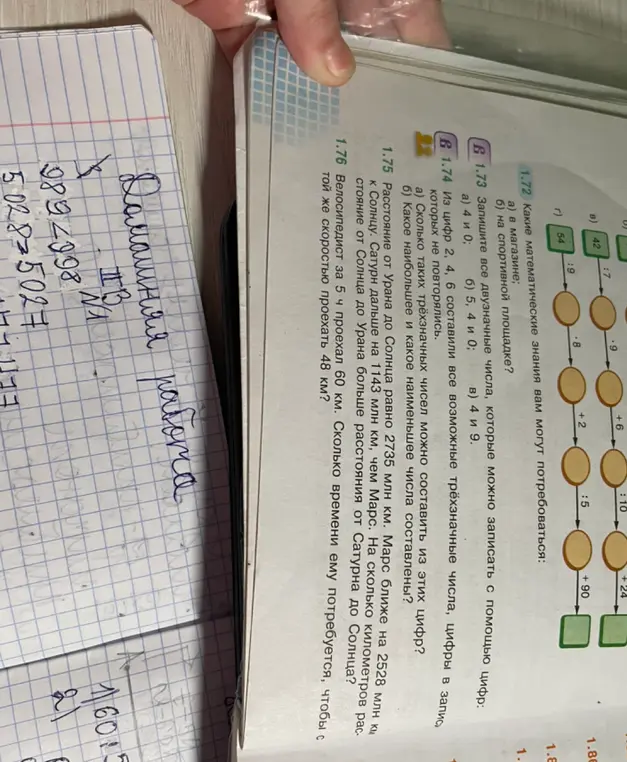 б)
в) 42 :7 ·9 +6 :10 +24
г) 54 :9 ·8 +2 :5 +90
1.72 Какие математические знания вам могут потребоваться:
а) в магазине;
б) на спортивной площадке?
В 1.73 Запишите все двузначные числа, которые можно записать с помощью цифр:
а) 4 и 0; б) 5, 4 и 0; в) 4 и 9.
В 1.74 Из цифр 2, 4, 6 составили все возможные трёхзначные числа, цифры в запис
которых не повторялись.
а) Сколько таких трёхзначных чисел можно составить из этих цифр?
б) Какое наибольшее и какое наименьшее числа составлены?
1.75 Расстояние от Урана до Солнца равно 2735 млн км. Марс ближе на 2528 млн км
к Солнцу. Сатурн дальше на 1143 млн км, чем Марс. На сколько километров рас-
стояние от Солнца до Урана больше расстояния от Сатурна до Солнца?
1.76 Велосипедист за 5 ч проехал 60 км. Сколько времени ему потребуется, чтобы с
той же скоростью проехать 48 км?
1.8
1.
Домашняя работа
№1
989<998
5028>5027
1)60
2)